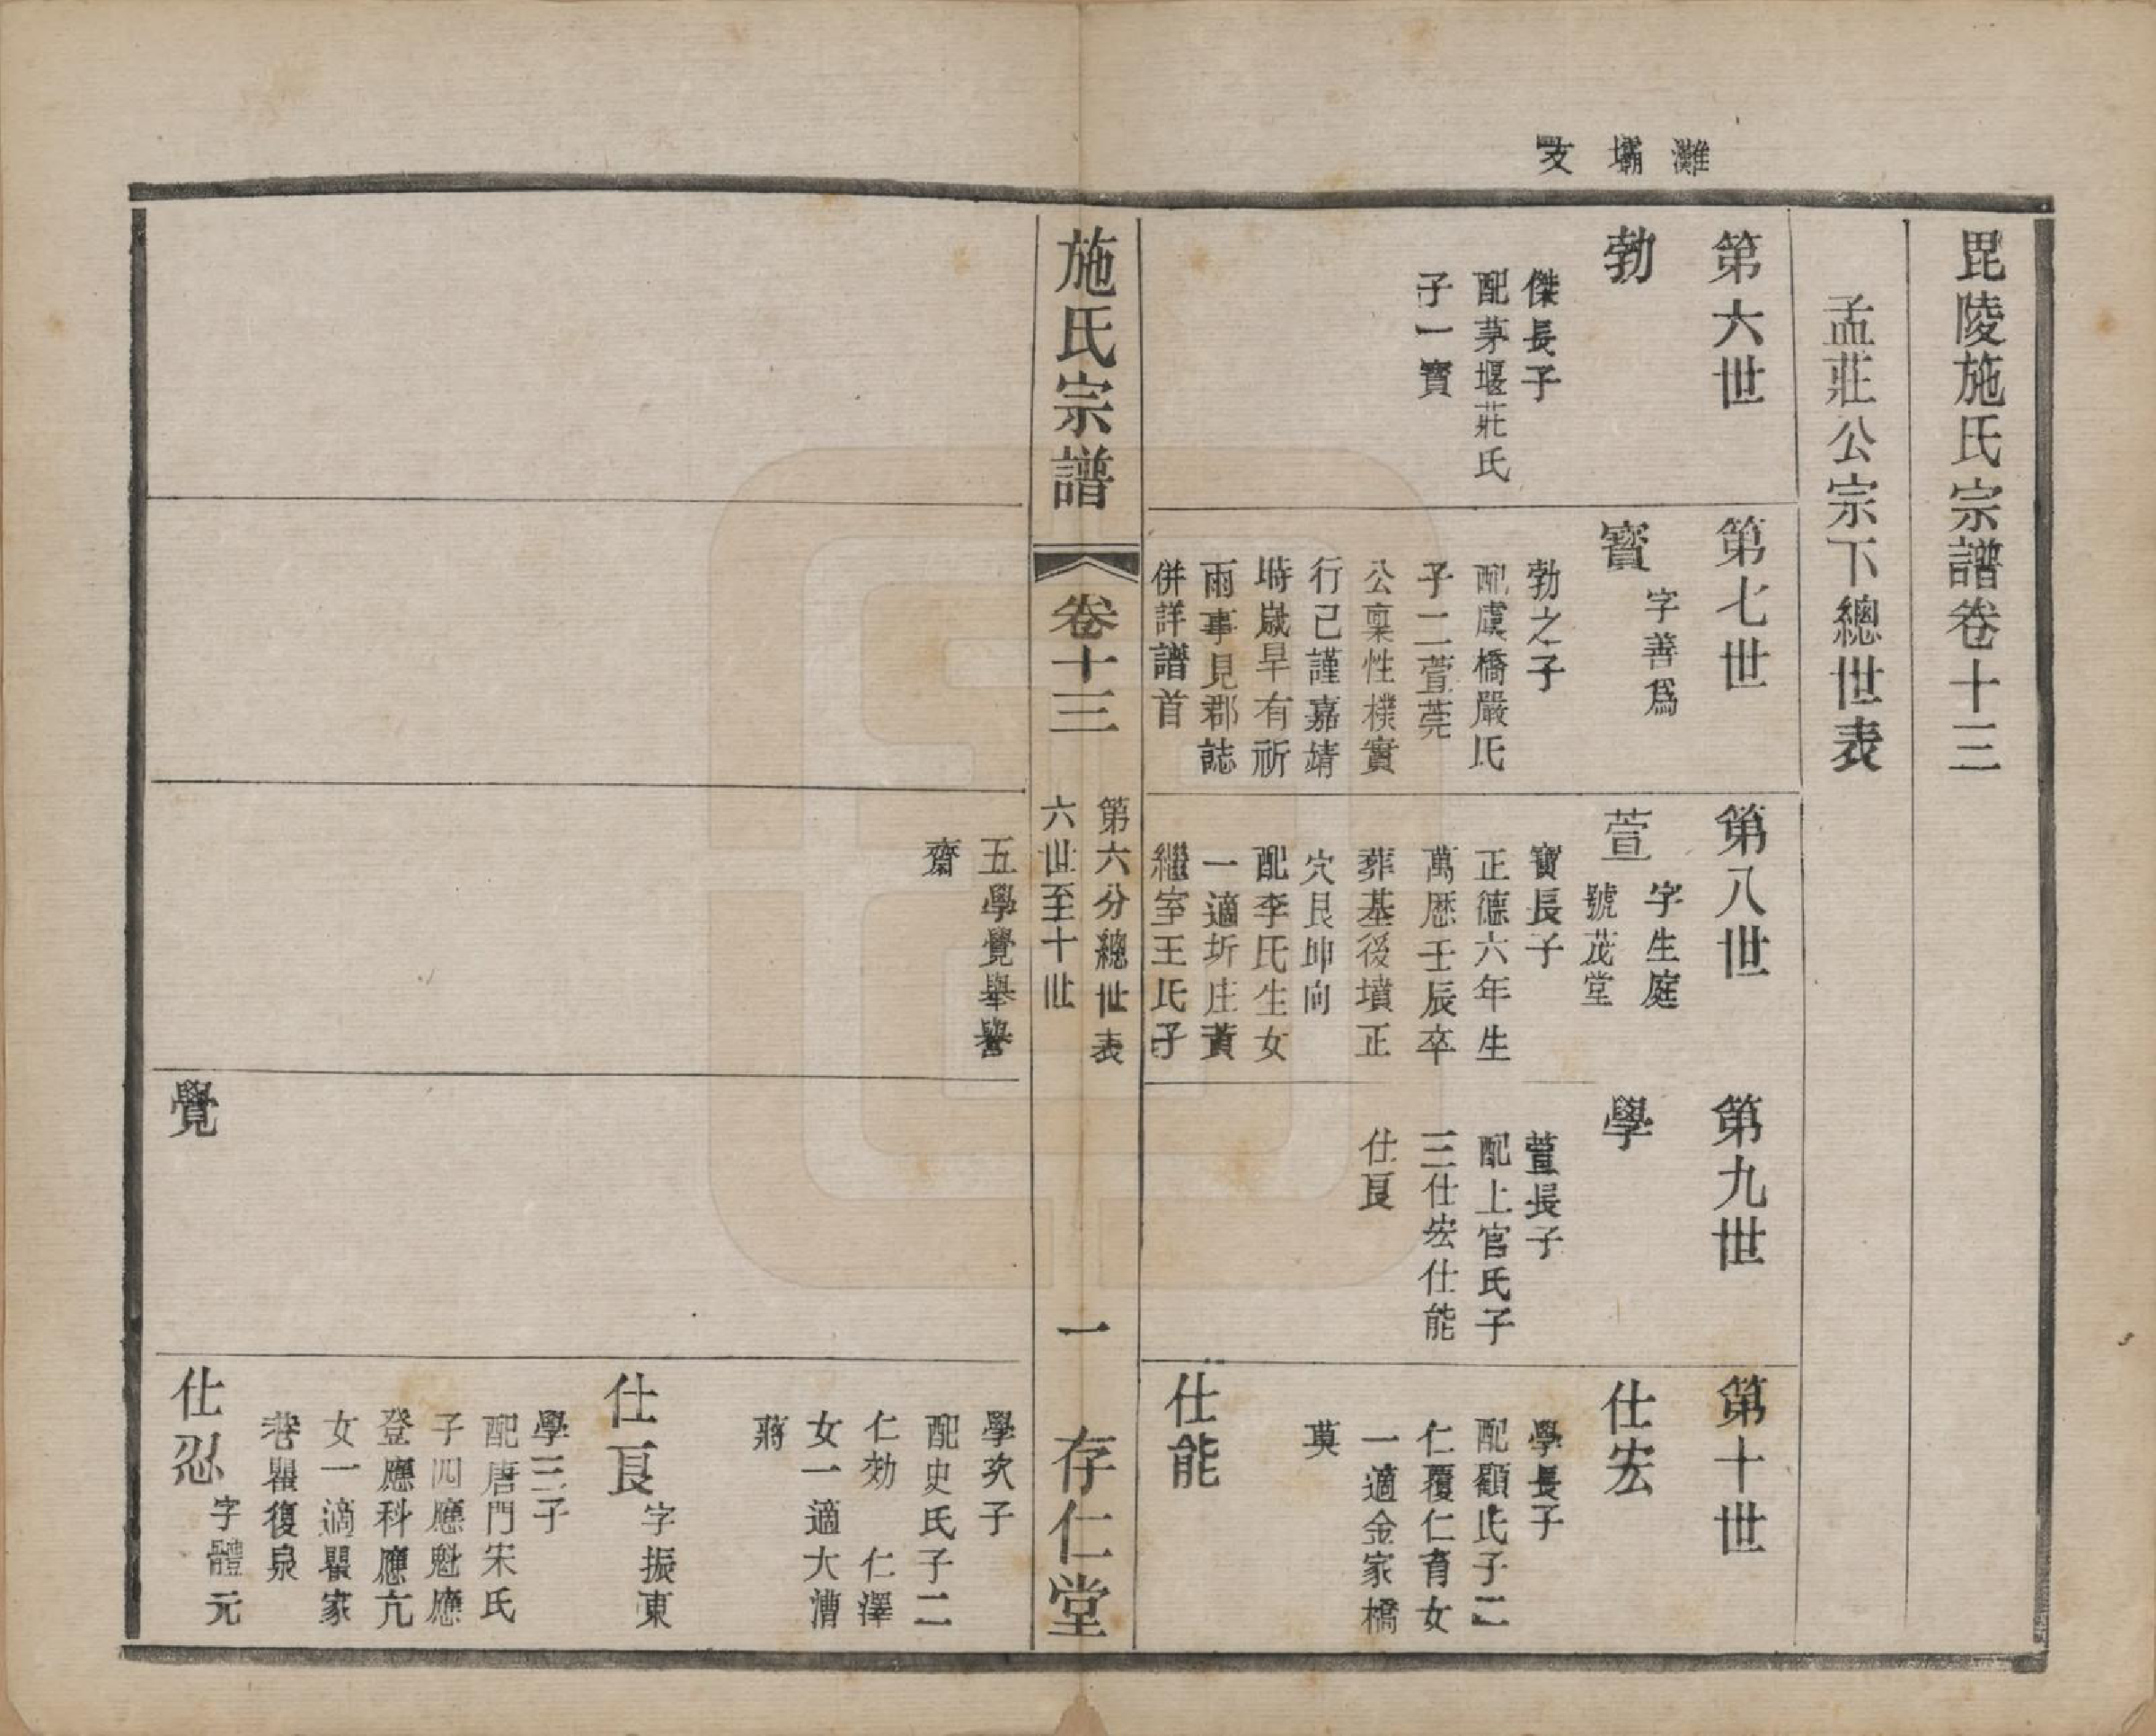 灘
壩
毘陵施氏宗譜卷十三
孟莊公宗下總世表
第六世
勃
傑長子
配茅堰莊氏
子一寳
第七世
寳
字善爲
勃之子
配虞橋嚴氏
子二萱莞
公稟性樸實
行己謹嘉靖
時歲旱有祈
雨事見郡誌
併詳譜首
第八世
萱
字生庭
號茂堂
寳長子
正德六年生
萬歷壬辰卒
葬基後墳正
穴艮坤向
配李氏生女
一適圻庄黃
繼室王氏子
五學覺舉譽
齋
第九世
學
萱長子
配上官氏子
三仕宏仕能
仕良
覺
第十世
仕宏
學長子
配顧氏子二
仁覆仁育女
一適金家橋
莫
仕能
學次子
配史氏子二
仁効 仁澤
女一適大漕
蔣
仕良
字振東
學三子
配唐門宋氏
子四應魁應
登應科應亢
女一適瞿家
巷瞿復泉
仕忍
字體元
施氏宗譜
卷十三
第六分總世表
六世至十世
一
存仁堂